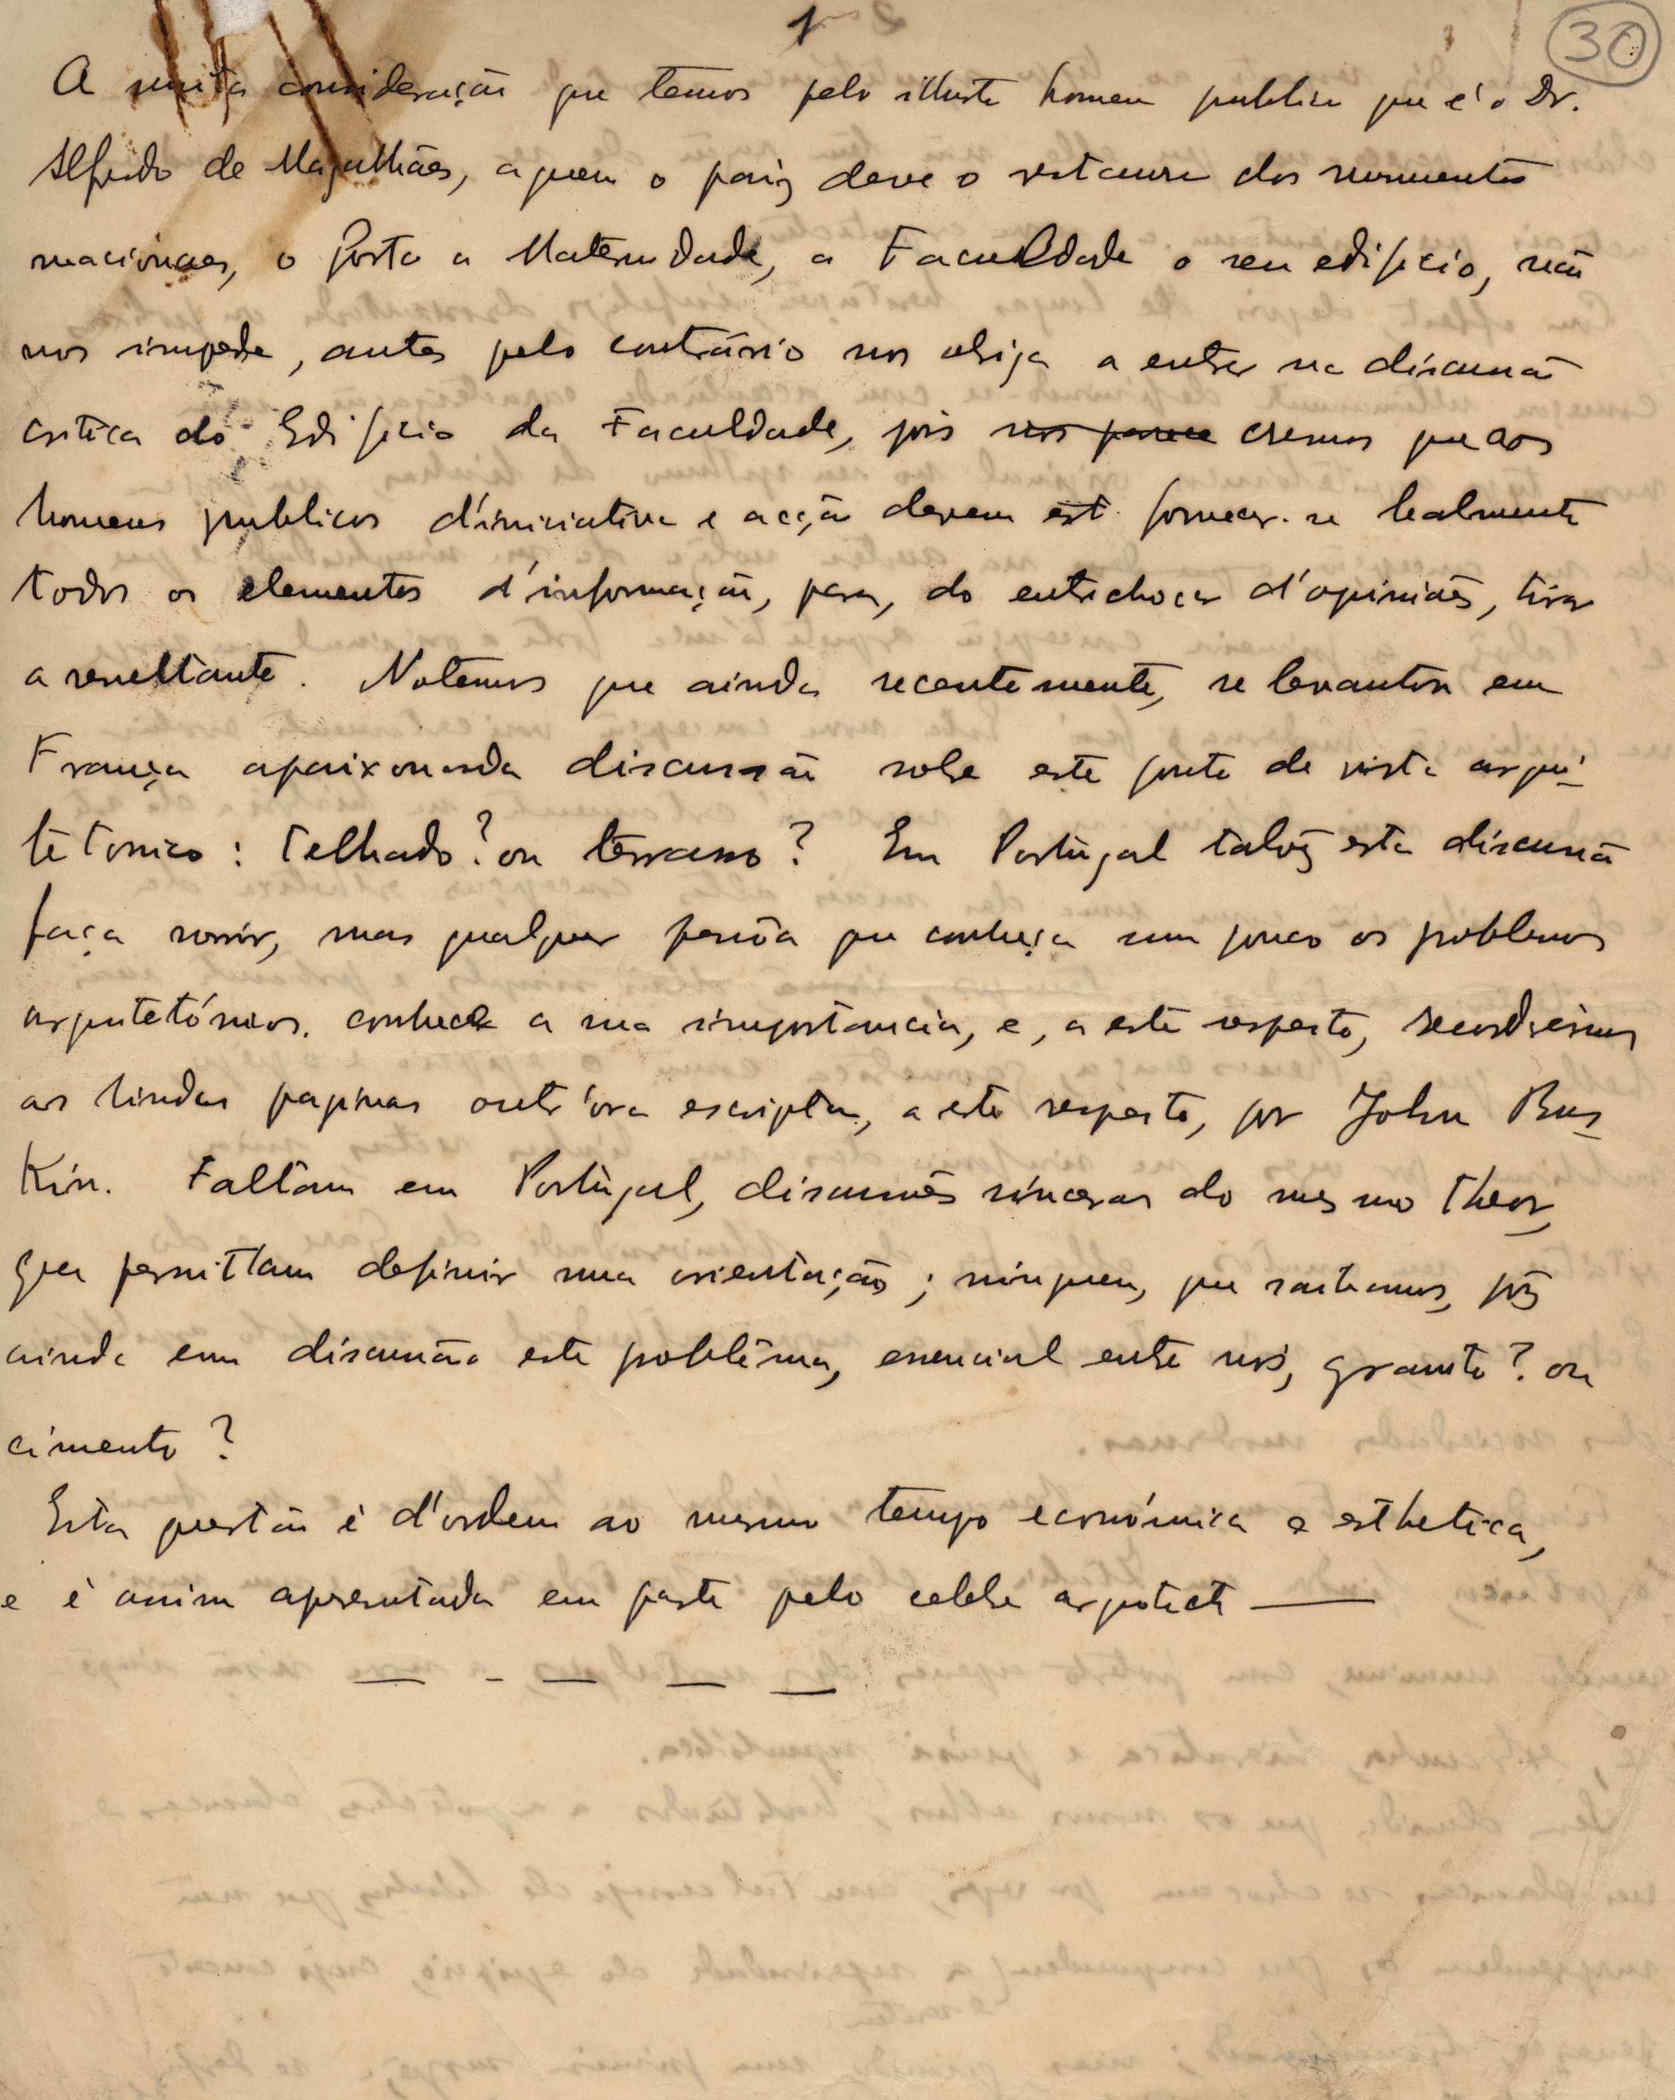 1
30
A muita consideração que temos pelo illustre homem publico que é o Dr.
Alfredo de Magalhães, a quem o paiz deve o restauro dos monumentos
nacionaes, o Porto a Maternidade, a Faculdade o seu edificio, não
nos impede, antes pelo contrário nos obriga a entrar na discussão
critica do Edificio da Faculdade, pois nos parece cremos que aos
homens publicos d'iniciativa e acção devem fornecer-se lealmente
todos os elementos d'informação, para, do entrechocar d'opiniões, tirar
a resultante. Notemos que ainda recentemente, se levantou em
França apaixonada discussão sobre este ponto de vista arqui-
tetonico: Telhado? ou terrasso? Em Portugal talvez esta discussão
faça sorrir, mas qualquer pessôa que conheça um pouco os problemas
arquitetónicos, conhece a sua importancia, e, a este respeito,
as lindas paginas outr'ora escriptas, a este respeito, por John Rus-
kin. Faltam em Portugal, discussões sinceras do mesmo theor,
que permittam definir uma orientação; ninguem, que saibamos, pôz
ainda em discussão este problêma, essencial entre nós, granito? ou
cimento?
Esta questão é d'ordem ao mesmo tempo económica e esthetica,
e é assim apresentada em parte pelo celebre arquitecto ——
— - — — —